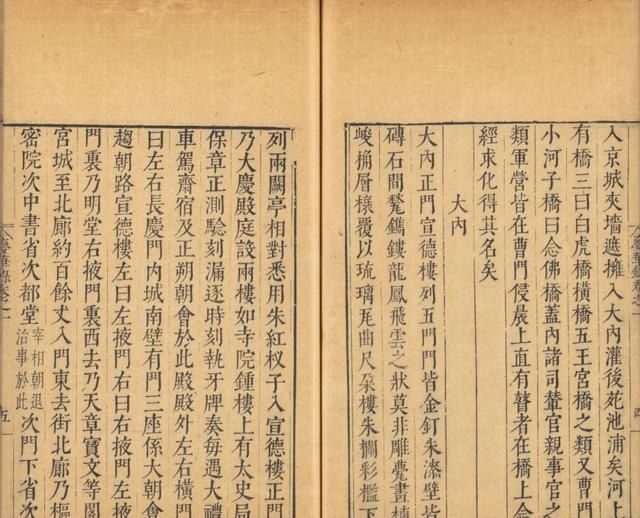 入京城夾墻遮擁入大內灌後苑池浦矣河上
有橋三曰白虎橋橫橋五王宮橋之類又曹門
小河子橋曰念佛橋蓋內諸司輦官親事官之
類軍營皆在曹門侵晨上直有瞽者在橋上念
經求化得其名矣
大內
大內正門宣德樓列五門門皆金釘朱漆壁皆
磚石間甃鐫鏤龍鳳飛雲之狀莫非雕甍畫棟
峻桷層榱覆以琉璃瓦曲尺朶樓朱欄彩檻下
列兩闕亭相對悉用朱紅杈子入宣德樓正門
乃大慶殿庭設兩樓如寺院鍾樓上有太史局
保章正測驗刻漏逐時刻執牙牌奏每遇大禮
車駕齋宿及正朔朝會於此殿殿外左右橫門
曰左右長慶門內城南壁有門三座係大朝會
趨朝路宣德樓左曰左掖門右曰右掖門左掖
門裏乃明堂右掖門裏西去乃天章寶文等閣
宮城至北廊約百餘丈入門東去街北廊乃樞
密院次中書省次都堂宰相朝退治事於此次門下省次
五